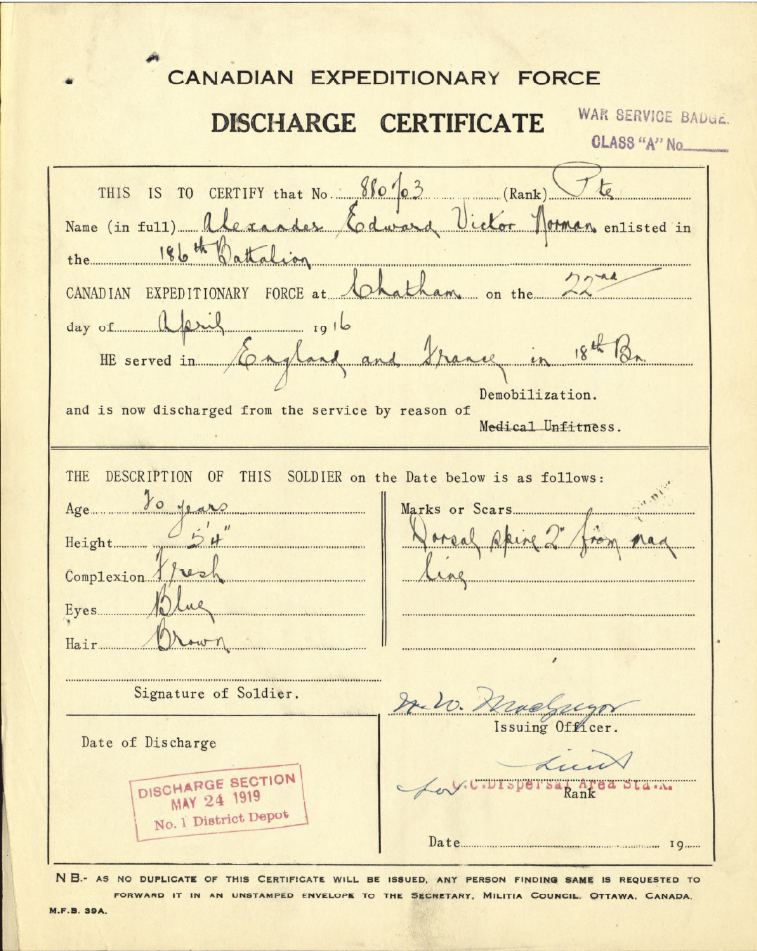 CANADIAN EXPEDITIONARY FORCE
DISCHARGE CERTIFICATE
WAR SERVICE BADGE.
CLASS "A" No
THIS IS TO CERTIFY that No. 880703 (Rank) Pte
Name (in full) Alexander Edward Victor Norman enlisted in
the 186th Battalion
CANADIAN EXPEDITIONARY FORCE at Chatham on the 22nd
day of April 1916
HE served in England and France in 18th Bn.
Demobilization.
and is now discharged from the service by reason of
Medical Unfitness.
THE DESCRIPTION OF THIS SOLDIER on the Date below is as follows:
Age 20 years
Height 5'4"
Complexion Fresh
Eyes Blue
Hair Brown
Marks or Scars
Dorsal spine 2" from
line
Signature of Soldier.
W. W. MacGregor
Issuing Officer.
Lieut
for O.C. Dispersal Area Sta. K.
Rank
Date of Discharge
DISCHARGE SECTION
MAY 24 1919
No. 1 District Depot
Date 19
NB.- AS NO DUPLICATE OF THIS CERTIFICATE WILL BE ISSUED, ANY PERSON FINDING SAME IS REQUESTED TO
FORWARD IT IN AN UNSTAMPED ENVELOPE TO THE SECRETARY, MILITIA COUNCIL, OTTAWA, CANADA.
M.F.B. 39A.